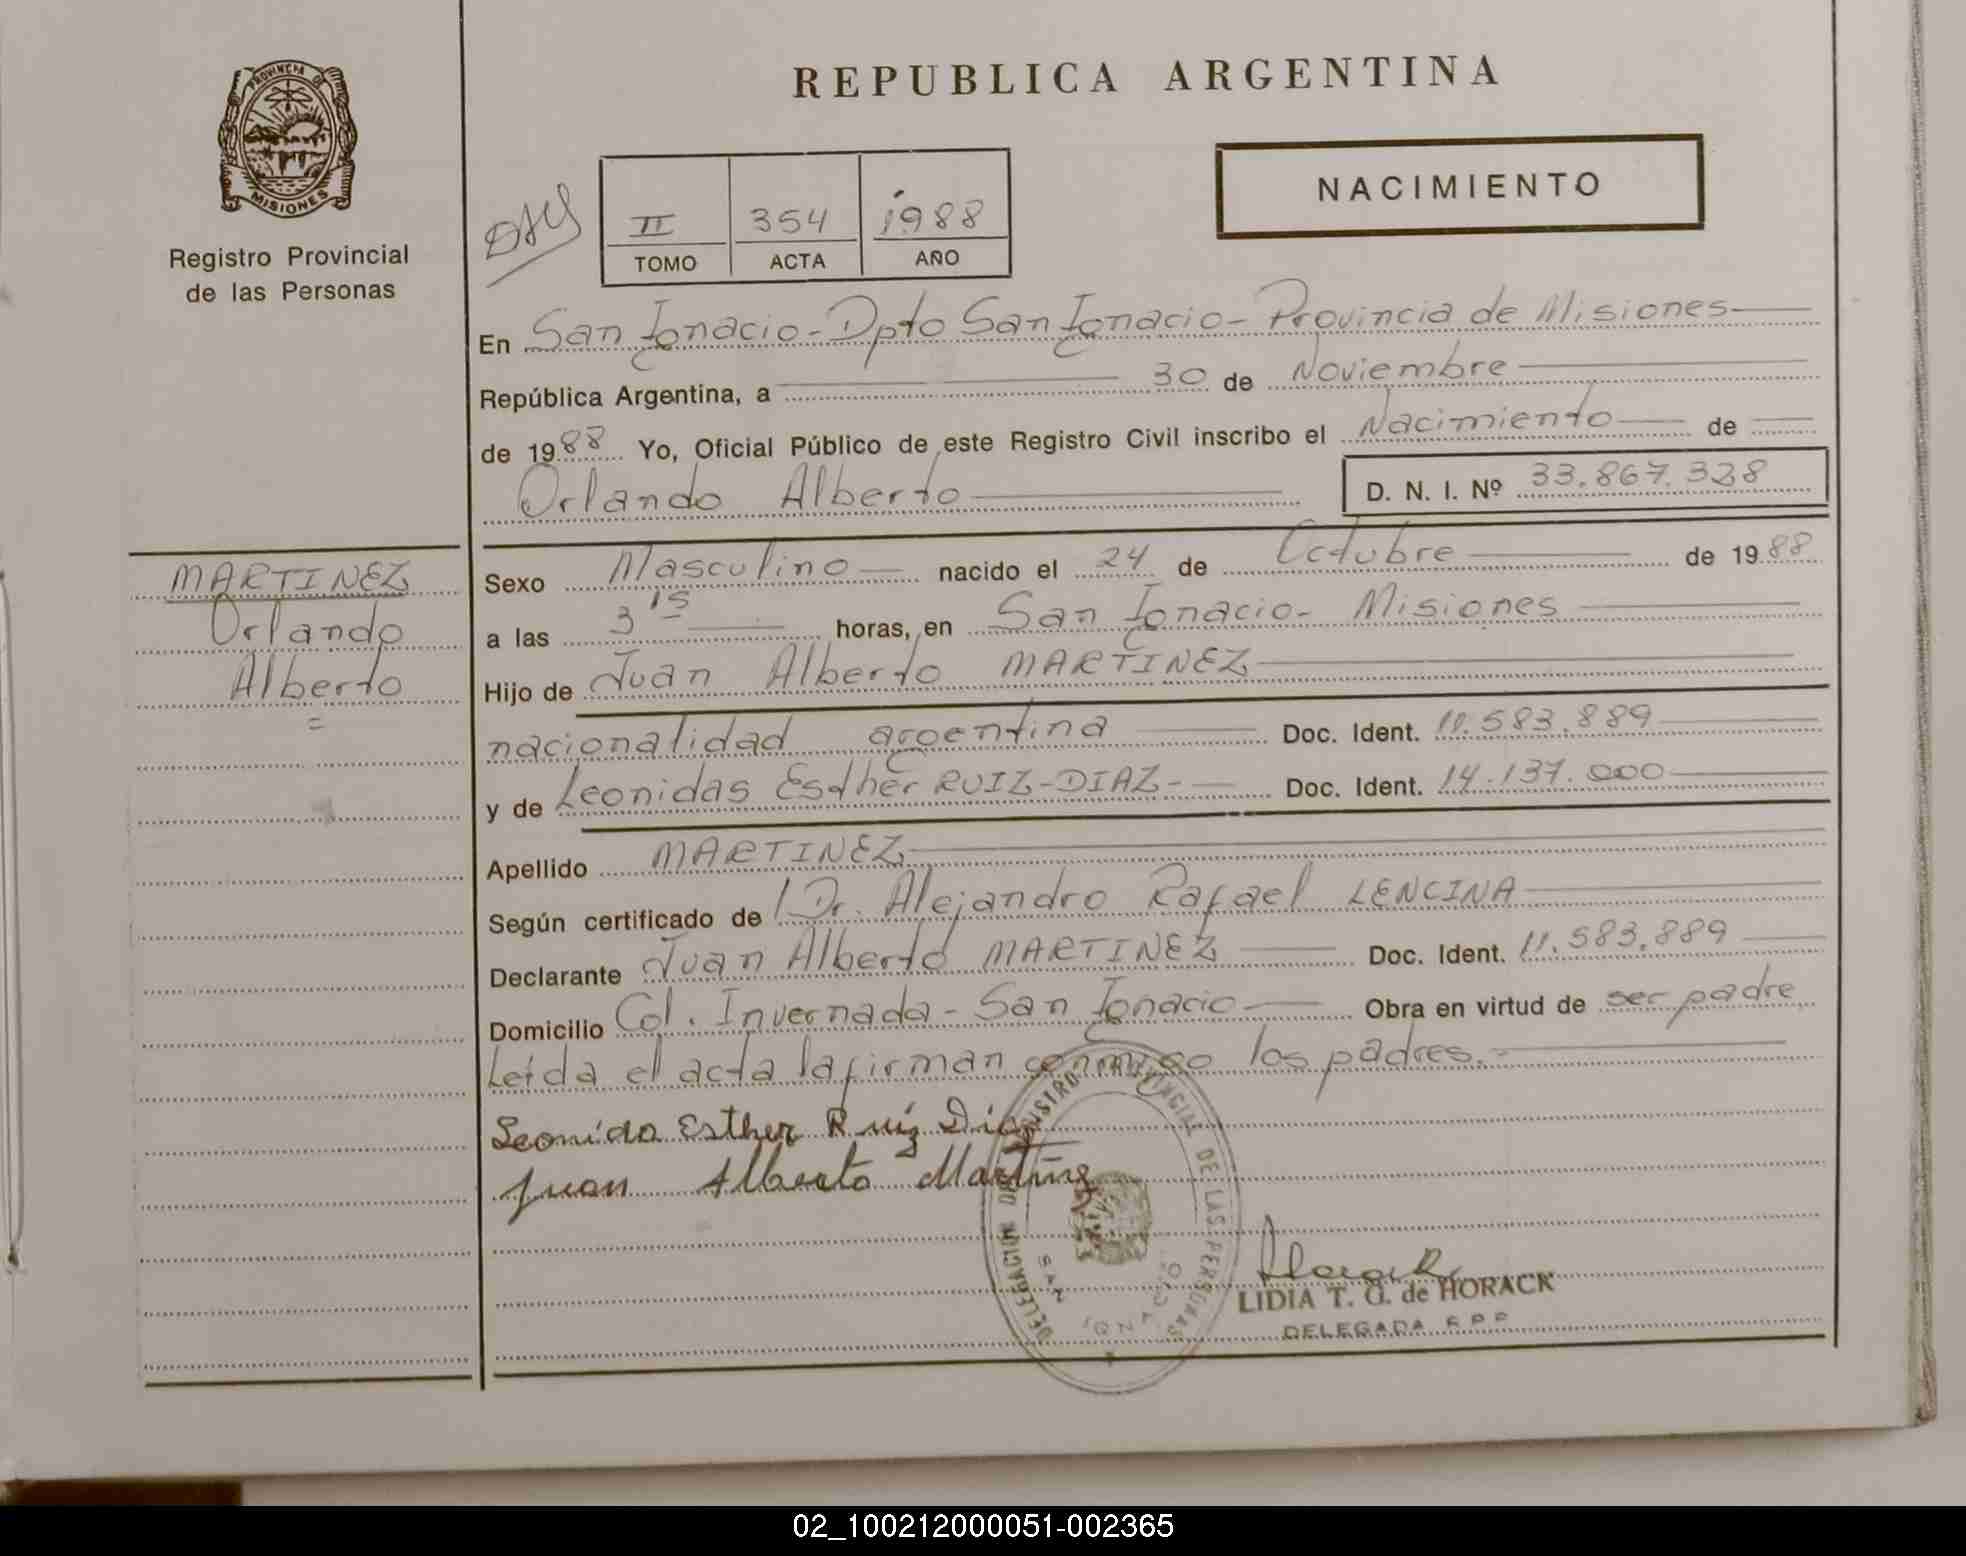 REPUBLICA ARGENTINA
PROVINCIA DE
MISIONES
Registro Provincial
de las Personas
II 354 1988
TOMO ACTA AÑO
NACIMIENTO
En San Ignacio - Dpto San Ignacio - Provincia de Misiones
República Argentina, a 30 de Noviembre
de 1988 Yo, Oficial Público de este Registro Civil inscribo el Nacimiento de
Orlando Alberto D. N. I. Nº 33.867.328
MARTINEZ
Orlando
Alberto
=
Sexo Masculino nacido el 24 de Octubre de 1988
a las 3 15 horas, en San Ignacio - Misiones
Hijo de Juan Alberto MARTINEZ
nacionalidad argentina Doc. Ident. 11.583.889
y de Leonidas Esther RUIZ-DIAZ- Doc. Ident. 14.137.000
Apellido MARTINEZ
Según certificado de Dr. Alejandro Rafael LENCINA
Declarante Juan Alberto MARTINEZ Doc. Ident. 11.583.889
Domicilio Col. Invernada - San Ignacio Obra en virtud de ser padre
Leída el acta la firman conmigo los padres.-
Leonida Esther Ruiz Diaz
Juan Alberto Martinez
REGISTRO PROVINCIAL DE LAS PERSONAS
DELEGACION
SAN IGNACIO
LIDIA T. G. de HORACK
DELEGADA R.P.P.
02_100212000051-002365